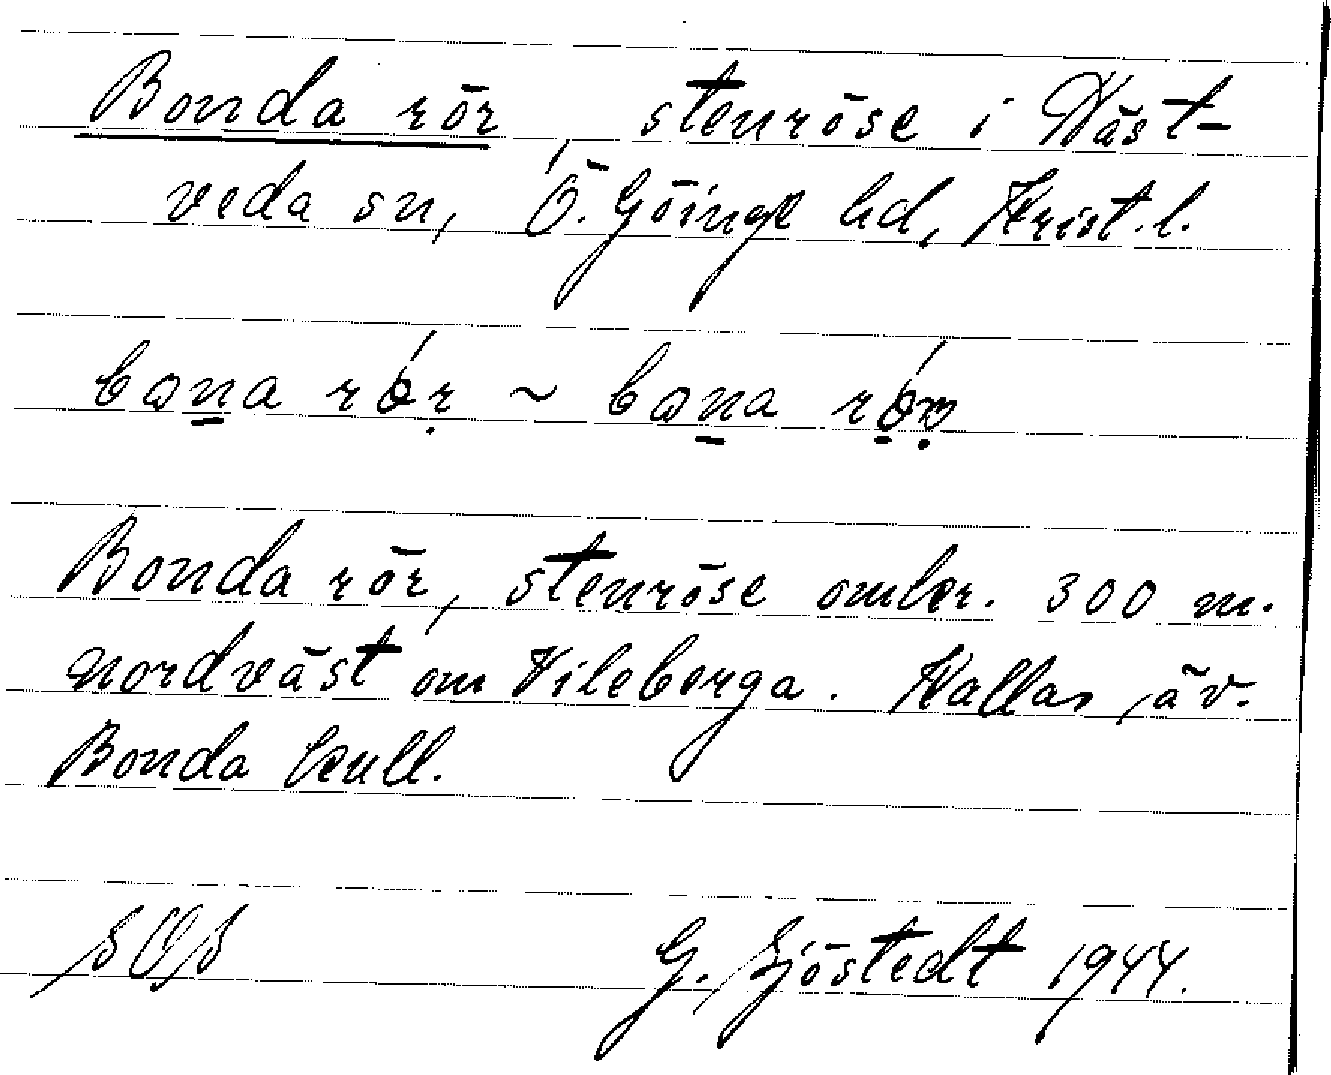 Bonda rör stenröse i Väst-
veda sn, Ö. Göinge hd, Krist. l.
Bonda rör, stenröse omkr. 300 m.
nordväst om Vileberga. Kallas äv.
Bonda kull.
G. Sjöstedt 1944.